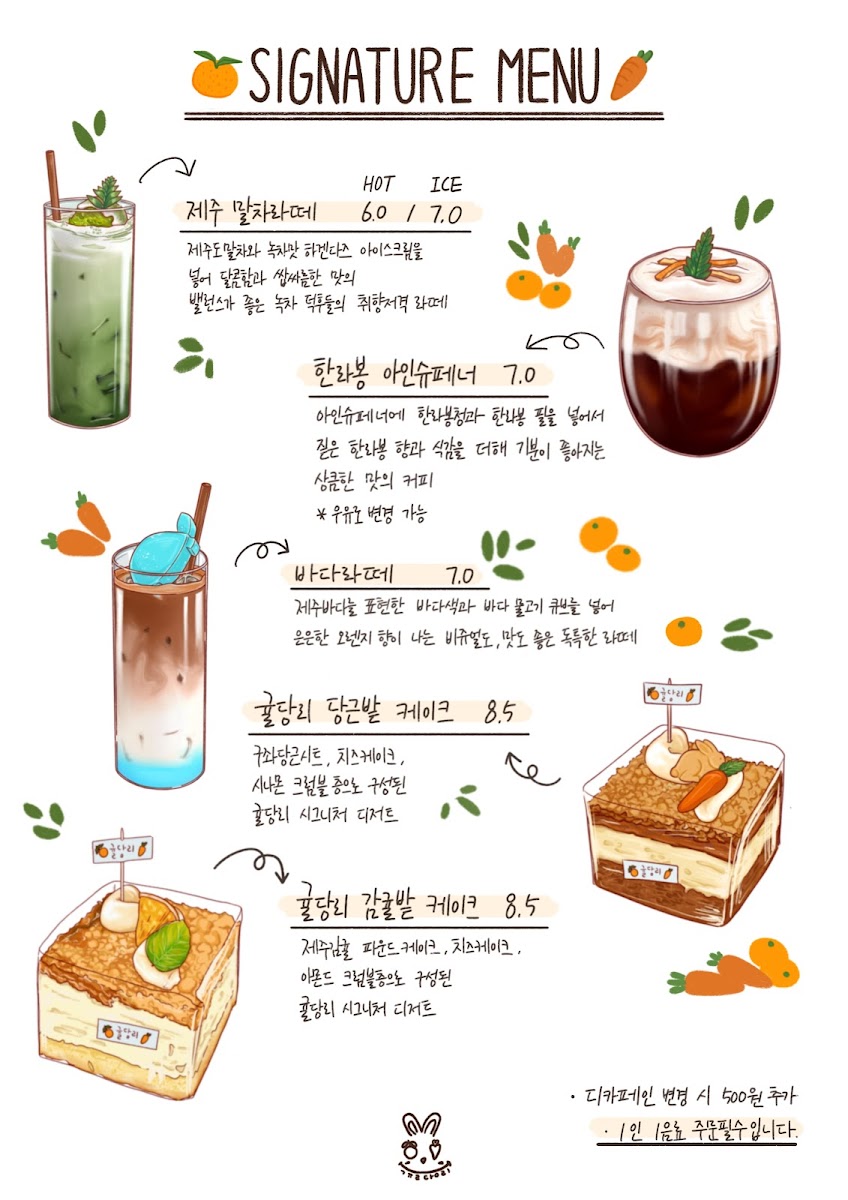 SIGNATURE MENU
HOT ICE
제주 말차라떼 6.0 / 7.0
제주도말차와 녹차맛 하겐다즈 아이스크림을
넣어 달콤함과 쌉싸름한 맛의
밸런스가 좋은 녹차 덕후들의 취향저격 라떼
한라봉 아인슈페너 7.0
아인슈페너에 한라봉청과 한라봉 필을 넣어서
짙은 한라봉 향과 식감을 더해 기분이 좋아지는
상큼한 맛의 커피
* 우유로 변경 가능
바다라떼 7.0
제주바다를 표현한 바다색과 바다 물고기 큐브를 넣어
은은한 오렌지 향이 나는 비쥬얼도, 맛도 좋은 독특한 라떼
귤당리 당근밭 케이크 8.5
구좌당근시트, 치즈케이크,
시나몬 크럼블 층으로 구성된
귤당리 시그니처 디저트
귤당리
귤당리
귤당리 감귤밭 케이크 8.5
제주감귤 파운드케이크, 치즈케이크,
아몬드 크럼블층으로 구성된
귤당리 시그니처 디저트
귤당리
귤당리
· 디카페인 변경 시 500원 추가
· 1인 1음료 주문필수입니다.